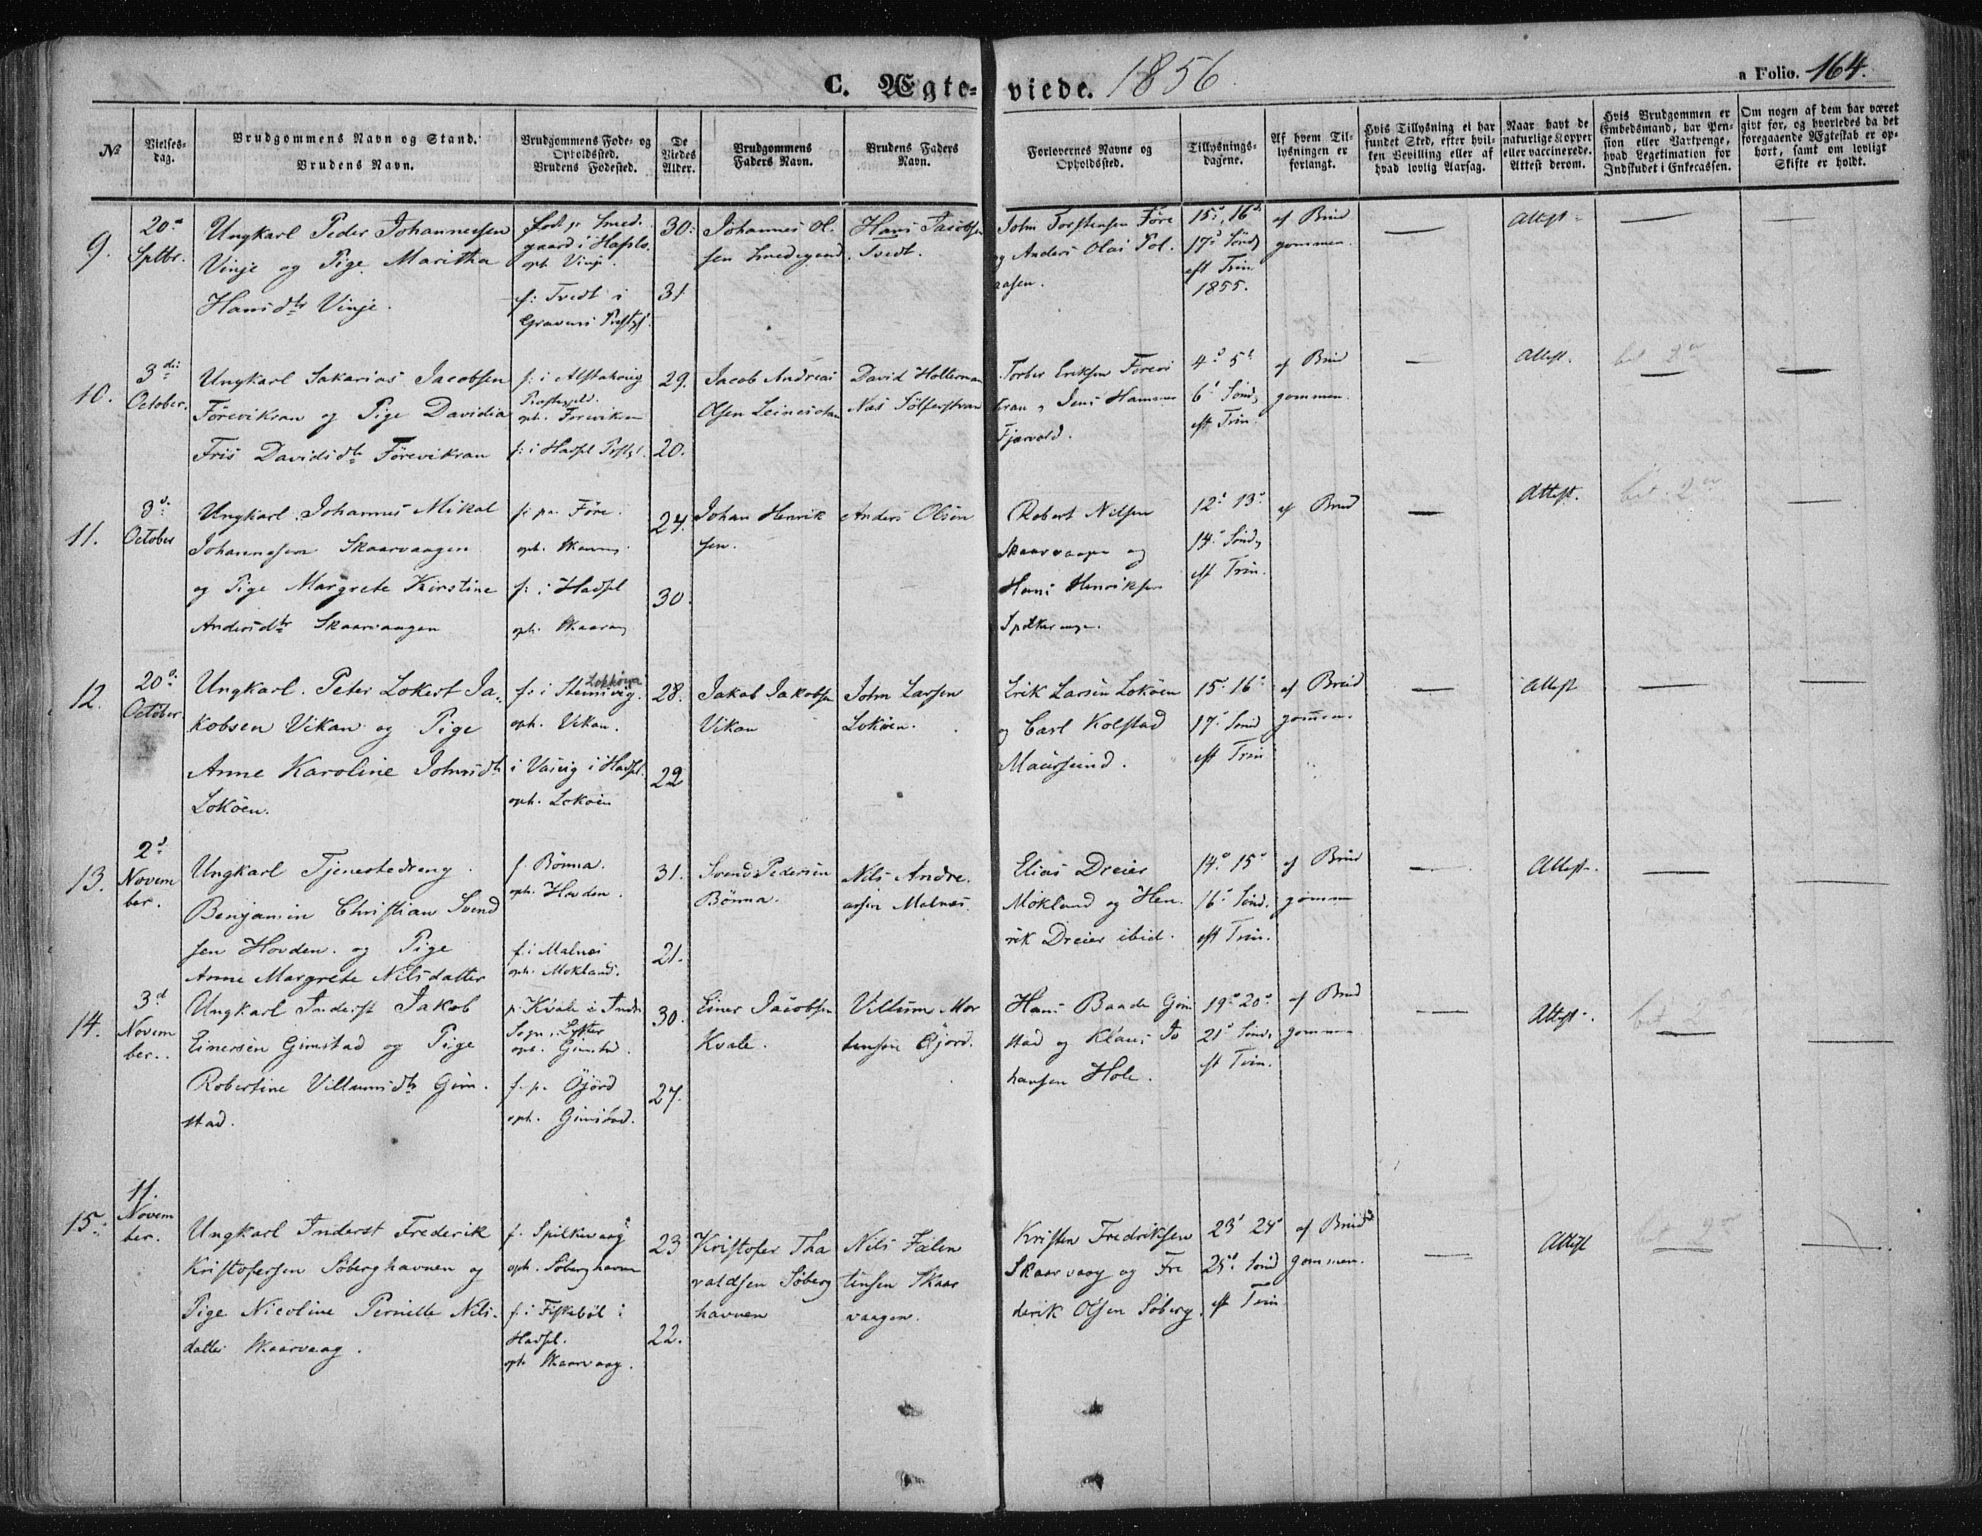 C. Ægte- viede. 1856.
a Folio. 164.
№
Vielses-
dag.
Brudgommens Navn og Stand.
Brudens Navn.
Brudgommens Føde- og
Opholdssted.
Brudens Fødested.
De
Viedes
Alder.
Brudgommens
Faders Navn.
Brudens Faders
Navn.
Forlovernes Navne og
Opholdssted.
Tillysnings-
dagene.
Af hvem Til-
lysningen er
forlangt.
Hvis Tillysning ei har
fundet Sted, efter hvil-
ken Bevilling eller af
hvad lovlig Aarsag.
Naar havt de
naturlige Kopper
eller vaccinerede.
Attest derom.
Hvis Brudgommen er
Embedsmand, har Pen-
sion eller Vartpenge,
hvad Legetimation for
Indskudet i Enkecassen.
Om nogen af dem har været
gift for, og hvorledes da det
foregaaende Ægteskab er op-
hørt, samt om lovligt
Skifte er holdt.
9.
20de
Sptbr.
Ungkarl Peder Johannessen
Vinje og Pige Maritha
Hansdtr Vinje.
fød p. Smed-
gaard i Hafslo.
oph. Vinje.
f: Tvedt i
Gravens Prestgj.
30.
31
Johannes Ol-
sen Smedegaard.
Hans Jacobsen
Tvedt.
John Torstensen Føre
og Anders Olai Pol-
aasen.
15d, 16d
17d Sønd
eft Trin
1855.
af Brud
gommen.
Attest
10.
3die
October.
Ungkarl Sakarias Jacobsen
Førevikran og Pige Davidia
Fris Davidsdtr Førevikran
f: i Alstahoug
Prestegjeld.
oph. Føreviken
f: i Hadsel Prstgj.
29.
20.
Jacob Andreas
Olsen Leinesodan
David Holterman
Næs Sølferstran
Torber Eriksen Førevi
kran, Jens Hammer
Fjærvold.
4d 5d
6d Sønd
eft Trin.
af Brud
gommen.
Attest.
bet. 2
11.
3d
October
Ungkarl Johannes Mikal
Johannesen Skaarvaagen
og Pige Margrete Kirstine
Andersdtr Skaarvaagen
f: pa Føre.
oph. Skaarvg.
f: i Hadsel
oph. Skaarvg
24.
30.
Johan Henrik
sen.
Anders Olsen
Robert Nilsen
Skaarvaagen og
Hans Henriksen
Spilkevaagen.
12d 13d
14d Sønd
eft Trin.
af Brud
Attest.
bet. 2
12.
20d
October
Ungkarl. Peter Lokert Ja-
kobsen Vikan og Pige
Anne Karoline Johnsdtr
Lokøen.
f: i Steinsvig.
oph. Vikan.
i Vasvig i Hadsel.
oph. Lokøen
28.
22
Jakob Jakobsen
Vikan
John Larsen
Lokøen.
Erik Larsen Lokøen
og Carl Kolstad
Maursund.
15d 16d
17d Sønd
eft Trin
af Brud
gommen.
Attest
13.
2d
Novem
ber.
Ungkarl Tjenestedreng
Benjamin Christian Svend
sen Hovden. og Pige
Anne Margrete Nilsdatter
f. Bønna.
oph. Hovden.
f: i Malnes
oph. Mokland.
31.
21.
Svend Pedersen
Bønna.
Nils Andre-
asen Malnes.
Elias Dreier
Mokland og Hen-
rik Dreier ibid.
14d 15d
16d Sønd.
eft Trin.
af Brud
gommen
Attest.
14.
3d
Novem
ber.
Ungkarl Inderst Jakob
Einersen Gimstad og Pige
Robertine Villumsdtr Gim-
stad.
p. Kvale i Indr
Sogn, Lyster
oph. Gimstad.
f. pa Øjord
oph. Gimstad.
30.
27.
Einer Jacobsen
Kvale.
Villum Mor
tensen Øjord.
Hans Baade Gim
stad og Klaus Jo
hansen Hole.
19d 20d
21d Sønd
eft Trin.
af Brud
gommen
Attest.
15.
11.
Novem
ber.
Ungkarl Inderst Frederik
Kristofersen Søberghavnen og
Pige Nicoline Pernille Nils-
datter Skaarvaag.
f. Spilkevaag
oph. Søberghavn
f: i Fiskebøl i
Hadsel.
oph. Skaarvaag.
23
22.
Kristofer Tha
valdsen Søberg
havnen
Nils Falen
tinsen Skaar
vaagen.
Kristen Fredriksen
Skaarvaag og Fre
derik Olsen Søberg.
23d 24d
25d Sønd
eft Trin
af Brud
gommen.
Attest
bet 2